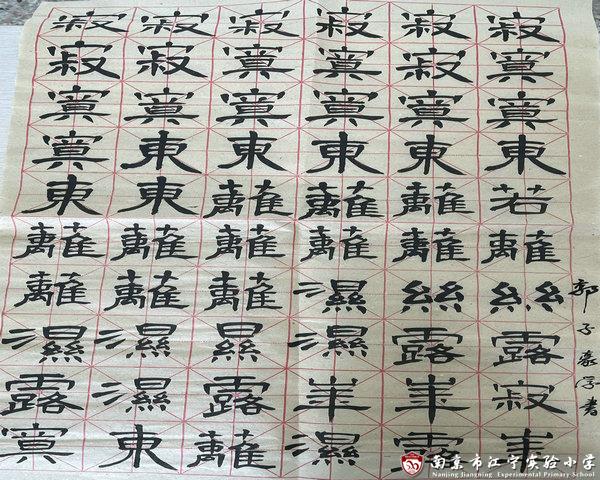 寂寂寂寂寂寂
寂寂寞寞寂寞
寞寞寞寞寞寞
寞東東東東東
東東蘺蘺蘺若
蘺蘺蘺蘺蘺蘺
蘺蘺蘺濕絲絲
濕濕㬎濕露露
露濕露寂
寞東蘺濕露
郭子書
南京市江宁实验小学
Nanjing Jiangning Experimental Primary School